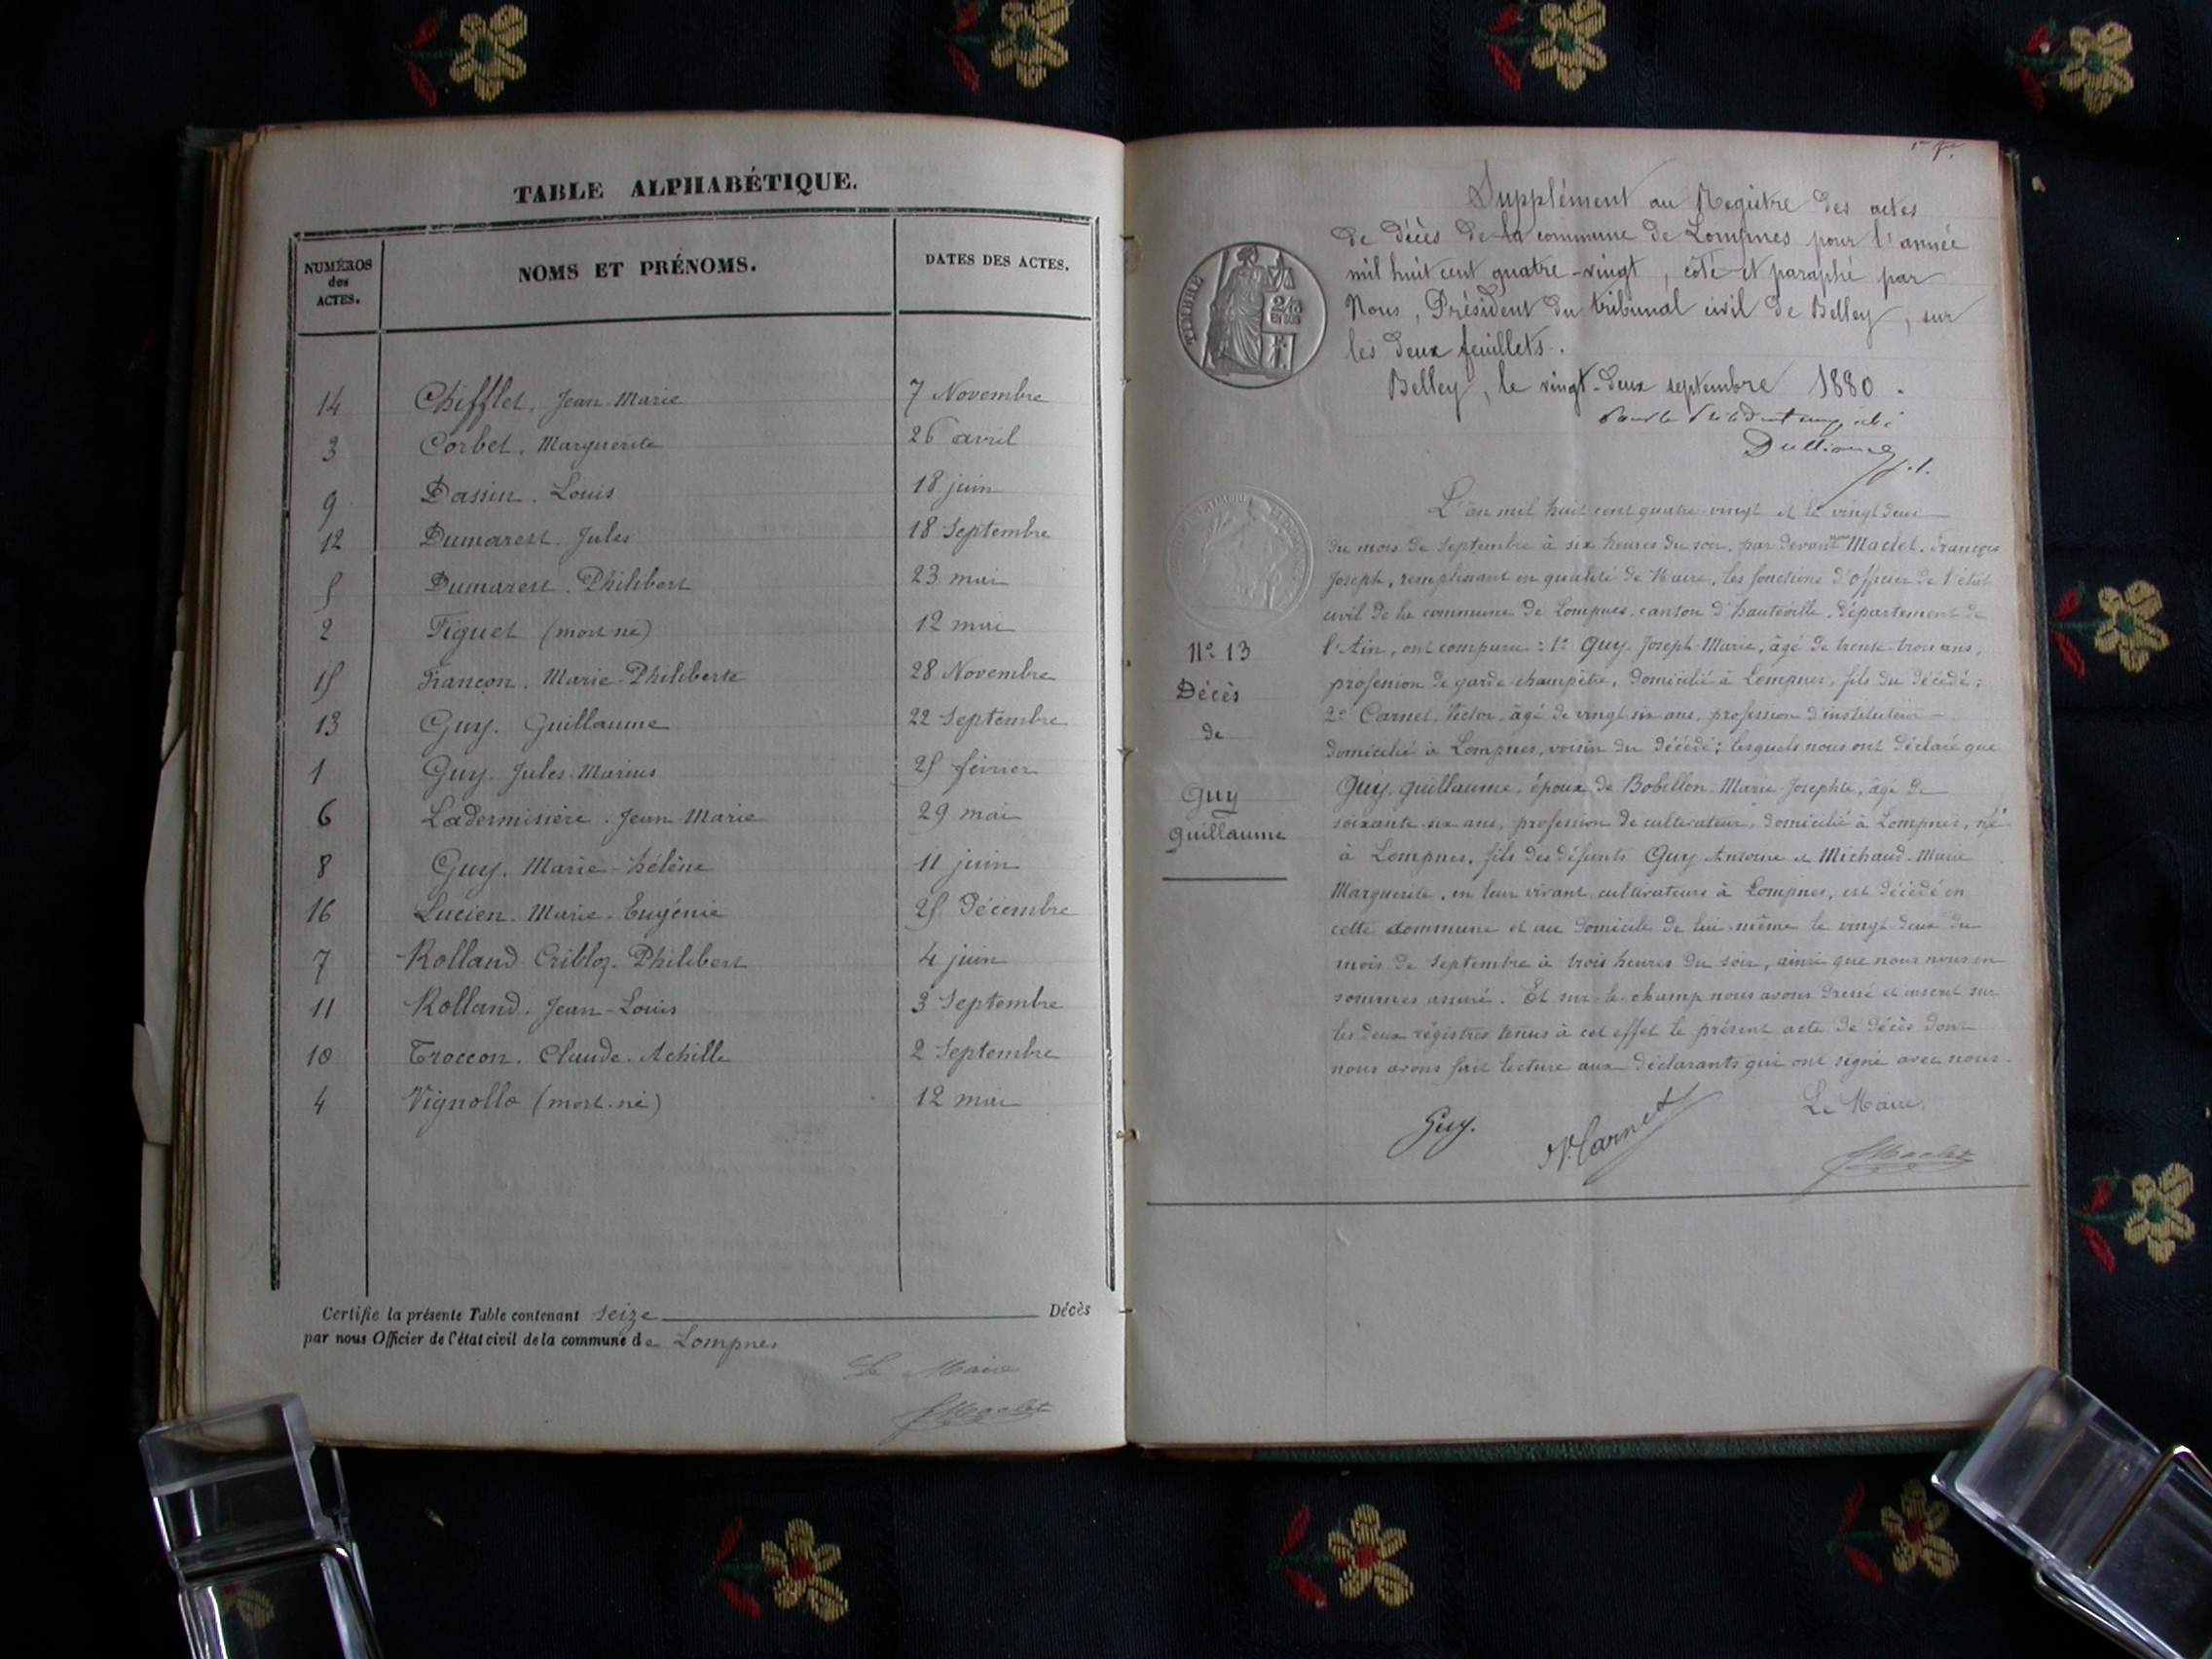 TABLE ALPHABÉTIQUE.
NUMÉROS des ACTES. NOMS ET PRÉNOMS. DATES DES ACTES.
14 Chifflet. Jean-Marie 7 Novembre
3 Corbet. Marguerite 26 avril
9 Dassin. Louis 18 juin
12 Dumarest. Jules 18 Septembre
5 Dumarest. Philibert 23 mai
2 Figuet (mort-né) 12 mai
15 Françon. Marie-Philiberte 28 Novembre
13 Guy. Guillaume 22 Septembre
1 Guy. Jules-Marius 25 février
6 Ladermisière. Jean-Marie 29 mai
8 Guy. Marie-hélène 11 juin
16 Lucien. Marie-Eugénie 25 Décembre
7 Rolland Cribloz. Philibert 4 juin
11 Rolland. Jean-Louis 3 Septembre
10 Troccon. Claude-Achille 2 Septembre
4 Vignollo (mort-né) 12 mai
Certifie la présente Table contenant seize Décès
par nous Officier de l'état civil de la commune de Lompnes
Le Maire
JMaclet
Supplément au Registre des actes
de décès de la commune de Lompnes pour l'année
mil huit cent quatre-vingt, coté et paraphé par
Nous, Président du tribunal civil de Belley, sur
les deux feuillets.
Belley, le vingt-deux septembre 1880.
Pour le Président
TIMBRE
L'an mil huit cent quatre-vingt et le vingt deux
du mois de Septembre à six heures du soir, par devant nous Maclet. François
Joseph, remplissant en qualité de Maire, les fonctions d'officier de l'état
civil de la commune de Lompnes, canton d'hauteville, département de
l'Ain, ont comparu : 1º Guy. Joseph-Marie, âgé de trente-trois ans,
profession de garde-champêtre, domicilié à Lompnes, fils du décédé;
2º Carnet. Victor, âgé de vingt six ans, profession d'instituteur
domicilié à Lompnes, voisin du décédé; lesquels nous ont déclaré que
Guy. Guillaume, époux de Bobillon Marie-Josephte, âgé de
soixante-six ans, profession de cultivateur, domicilié à Lompnes, né
à Lompnes, fils des défunts Guy Antoine et Michaud-Marie
Marguerite, en leur vivant cultivateurs à Lompnes, est décédé en
cette commune et au domicile de lui-même le vingt-deux du
mois de Septembre à trois heures du soir, ainsi que nous nous en
sommes assuré. Et sur-le-champ nous avons dressé et inscrit sur
les deux régistres tenus à cet effet le présent acte de décès dont
nous avons fait lecture aux déclarants qui ont signé avec nous.
Nº 13
Décès
de
Guy
Guillaume
Guy. V. Carnet Le Maire,
JMaclet